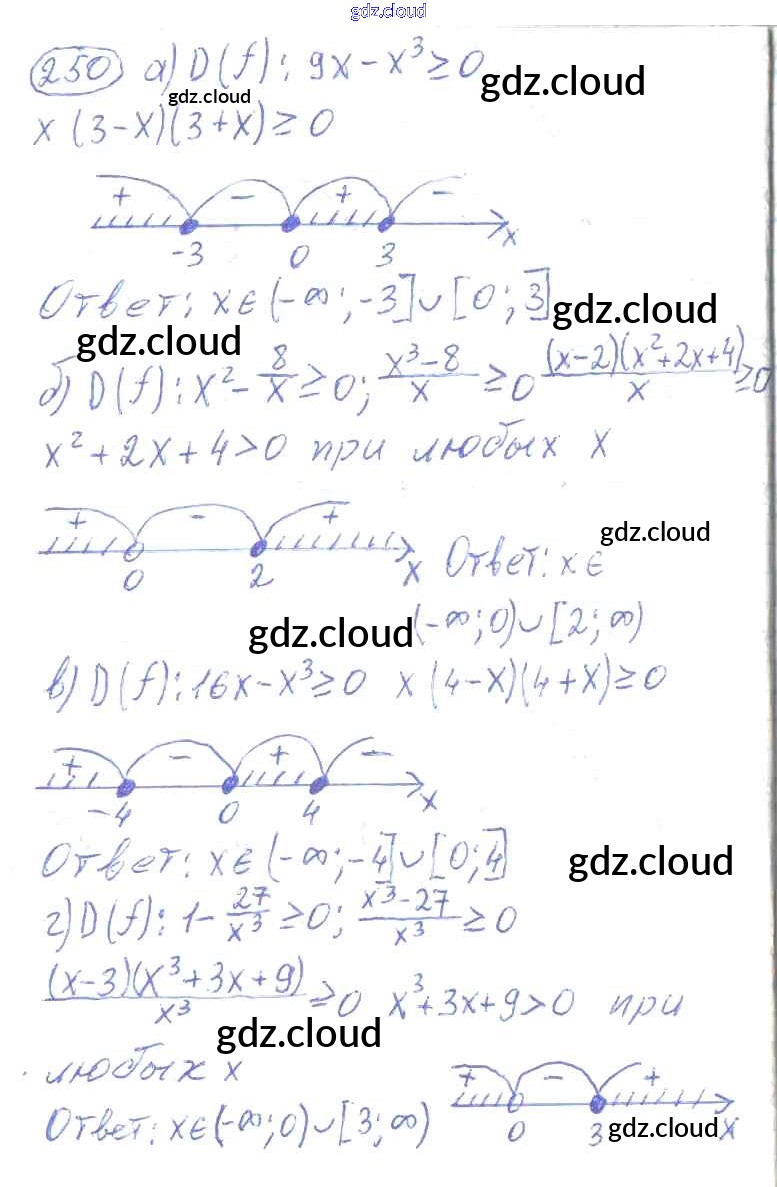 gdz.cloud
250) а) D(f): 9x-x³≥0
gdz.cloud
gdz.cloud
x(3-x)(3+x)≥0
+ - + -
-3 0 3 x
Ответ: x∈(-∞;-3]∪[0;3]
gdz.cloud
gdz.cloud
б) D(f): x²-8/x≥0; (x³-8)/x≥0 (x-2)(x²+2x+4)/x≥0
x²+2x+4>0 при любых x
+ - +
0 2 x
gdz.cloud
Ответ: x∈
(-∞;0)∪[2;∞)
gdz.cloud
в) D(f): 16x-x³≥0 x(4-x)(4+x)≥0
+ - + -
-4 0 4 x
Ответ: x∈(-∞;-4]∪[0;4]
gdz.cloud
г) D(f): 1-27/x³≥0; (x³-27)/x³≥0
(x-3)(x³+3x+9)/x³≥0 x³+3x+9>0 при
gdz.cloud
любых x
+ - +
0 3 x
gdz.cloud
Ответ: x∈(-∞;0)∪[3;∞)